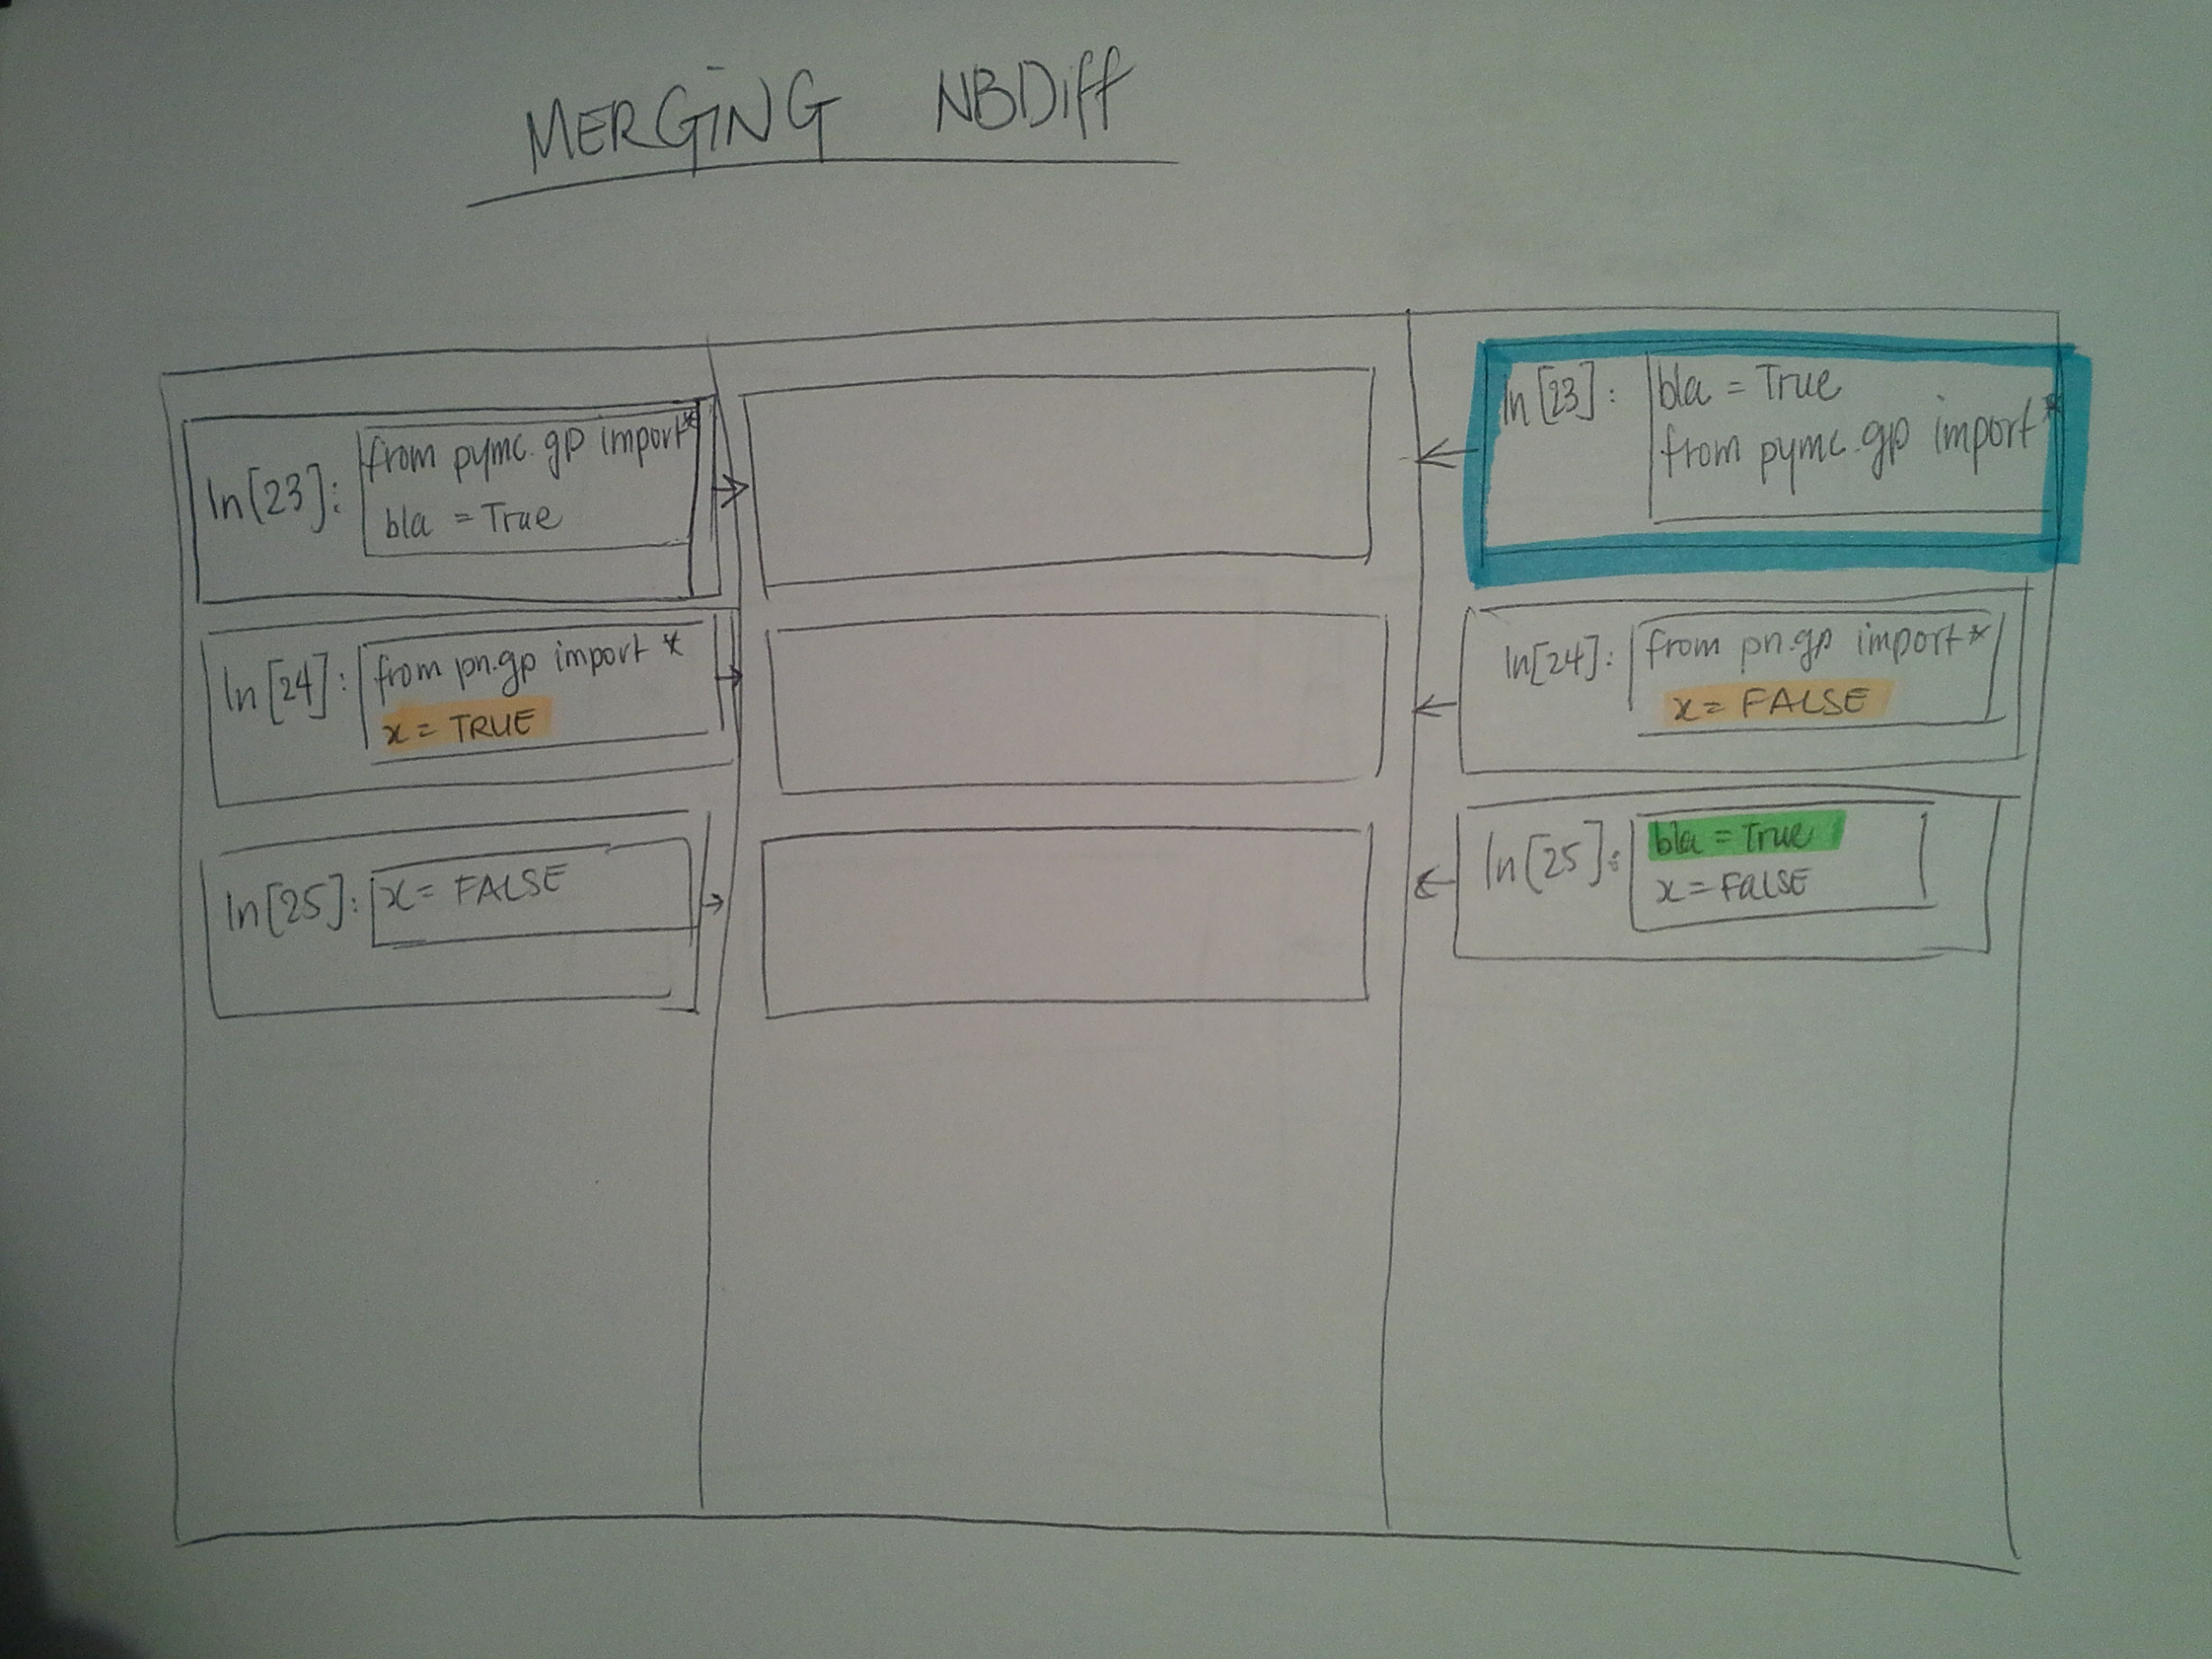 MERGiNG NBDiff
In[23]:
from pymc.gp import*
bla = True
In[24]:
from pn.gp import *
x = TRUE
In[25]:
x = FALSE
In[23]:
bla = True
from pymc.gp import*
In[24]:
from pn.gp import*
x = FALSE
In[25]:
bla = True
x = FalSE